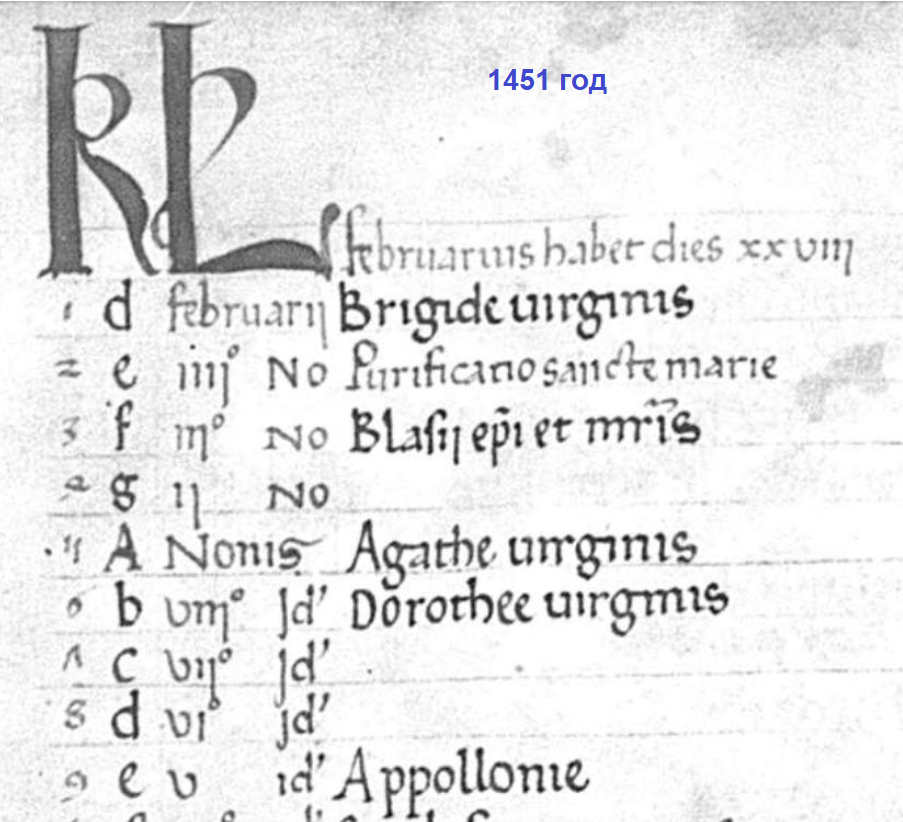 1451 год
KL februarius habet dies xxviij
1 d februarij Brigide uirginis
2 e iiijº No Purificatio sancte marie
3 f iijº No Blasij ep̃i et mr̃is
4 g ij No
5 A Nonis Agathe uirginis
6 b viijº Jd' Dorothee uirginis
7 c vijº Jd'
8 d viº jd'
9 e v id' Appollonie